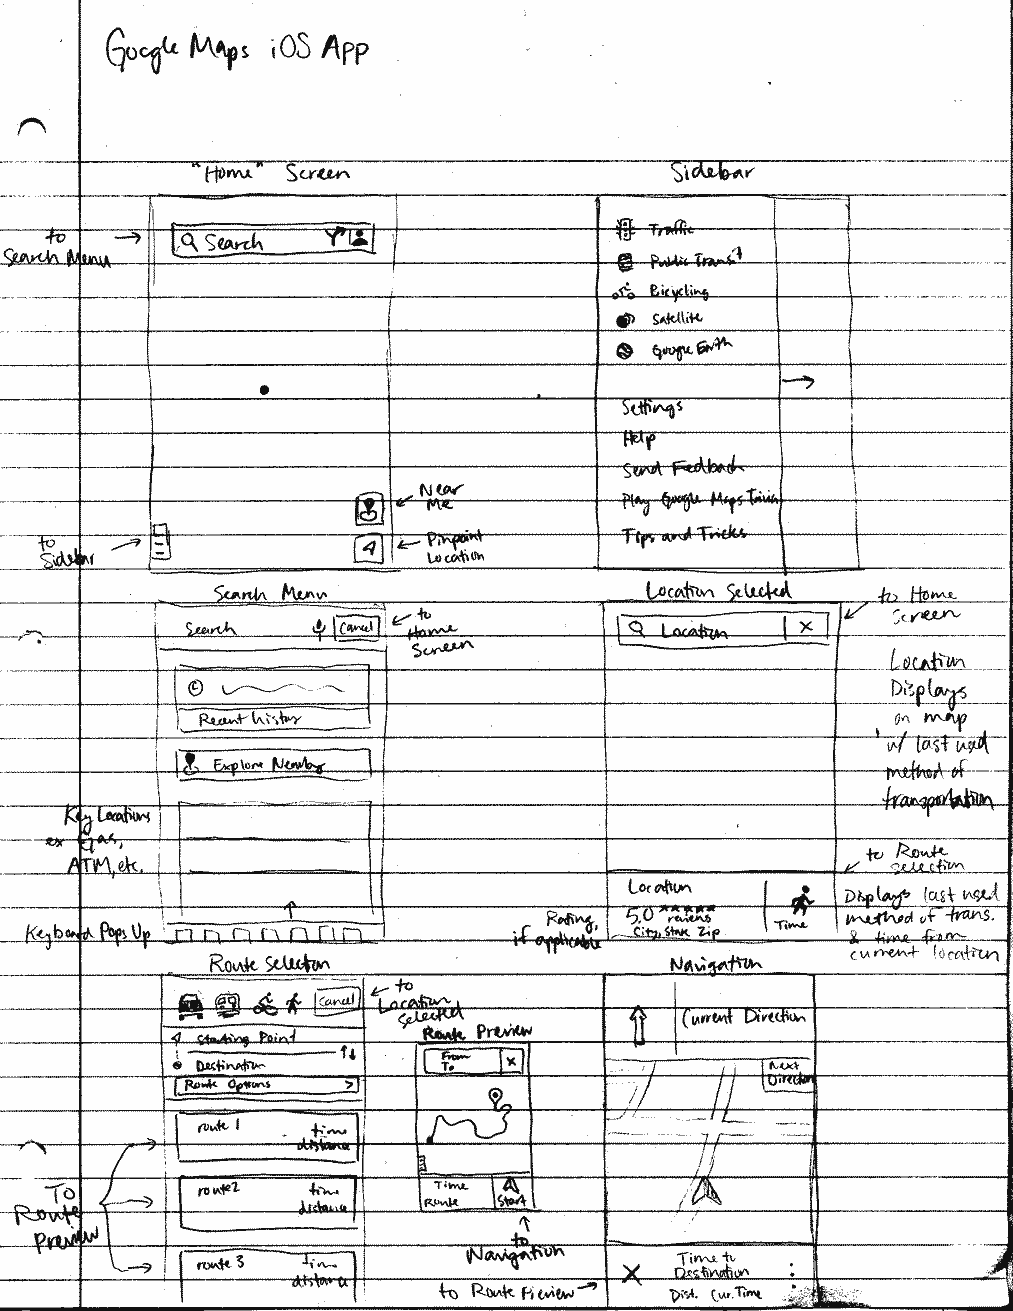 Google Maps iOS App
"Home" Screen
to
Search Menu
Search
Near
Me
Pinpoint
Location
to
Sidebar
Sidebar
Traffic
Public Transit
Bicycling
Satellite
Google Earth
Settings
Help
Send Feedback
Play Google Maps Trivia
Tips and Tricks
Search Menu
Search
Cancel
to
Home
Screen
Recent history
Explore Nearby
Key Locations
ex Gas,
ATM, etc.
Keyboard Pops Up
Location Selected
Location X
to Home
Screen
Location
Displays
on map
w/ last used
method of
transportation
to Route
selection
Location
5.0 ★★★★★
reviews
City, State Zip
Time
Rating,
if applicable
Displays last used
method of trans.
& time from
current location
Route Selection
Cancel
to
Location
Selected
Starting Point
Destination
Route Options >
route 1 time
distance
route 2 time
distance
route 3 time
distance
To
Route
Preview
Route Preview
From
To
X
Time
Route
Start
to
Navigation
Navigation
Current Direction
Next
Direction
X
Time to
Destination
Dist. Cur. Time
to Route Preview